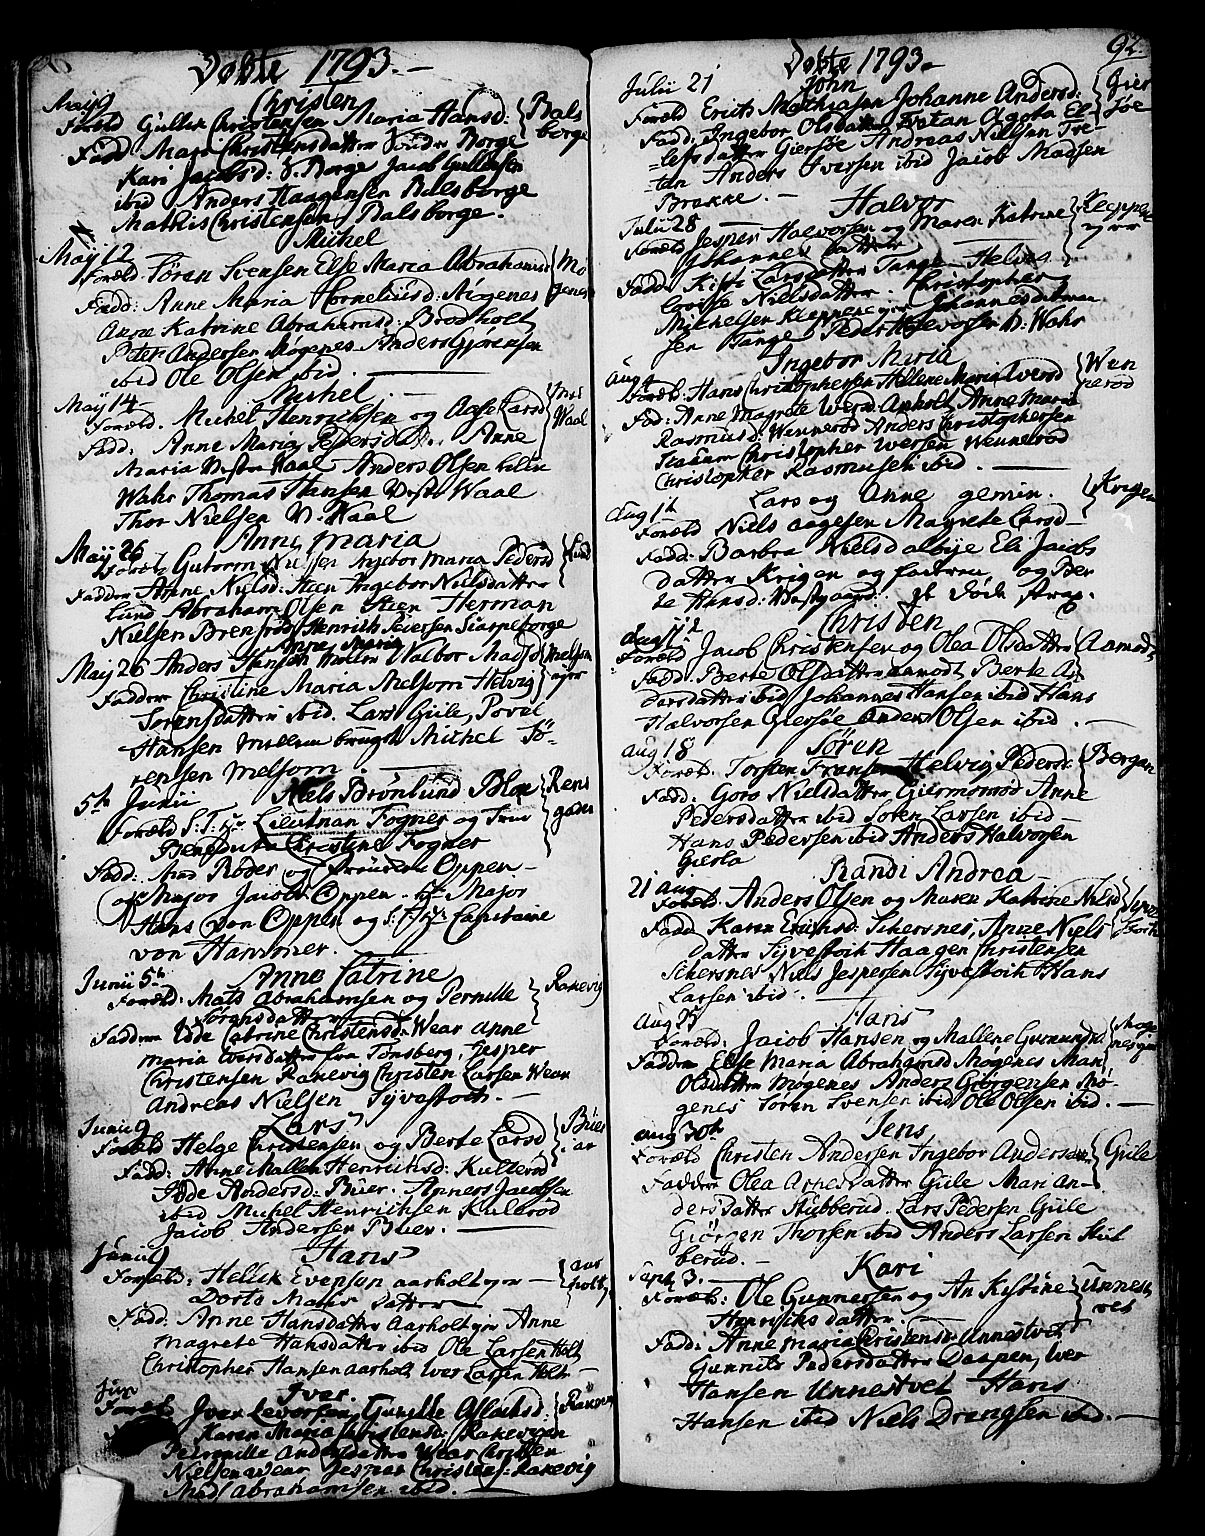 Døbte 1793.
Maÿ 9 Christen
Foræld Gullik Christensen Maria Hansd: Bals
Fadd: Mari Christensdatter Borge borge
Kari Jacobsd: Borge Jacob Gullersen
ibid Anders Haagensen Balsborge
Mathis Christensen Balsborge.
Maÿ 12 Michel
Foræld Søren Svensen Else Maria Abrahamsd Mø
Fadd: Anne Maria Corneliusd: Møgenes genes
Anne Katrine Abrahamsd: Brodholt
Peter Andersen Møgenes Anders Gjørensen
ibid Ole Olsen ibid.
Maÿ 14 Michel
Foræld. Michel Henrichsen og Aase Larsd
Fadd: Anne Maria Pedersdatter. Anne Waal
Maria Vestre Waal Anders Olsen
Thomas Hansen Vestre Waal
Thor Nielsen V: Waal
Maÿ 26 Anne Maria
Foræld Gutorm Nielsen Ingebor Maria Pedersd Lund
Faddere Anne Nielsd: Steen Ingebor Nielsdatter
Lund Abraham Olsen Steen Herman
Nielsen Brenrød Henrich Iversen Siarpeborge
Anne Maria
Maÿ 26 Anders Hansen Mellem Valbor Madsd Melsom
Faddere Christine Maria Melsom Helvig
Sørensdatter ibid. Lars Güle, Povel
Hansen Mellembrugt Michel Sø-
rensen Melsom
5th Junii Niels Brønlund Blox Rens
Foræld S. T. Hr Lieutnan Fogner og Frue gader
Benedicta Christine Fogner
Fadd: Mad Røder og Frøuken Oppen
Major Jacob Oppen. Hr Major
Hans von Oppen og S. T. Hr Capitaine
von Hammer.
Junii 5th Anne Catrine
Foræld: Mats Abrahamsen og Pernille Rakevig
Sørensdatter
Faddere Edde Catrine Christensd: Wear Anne
Maria Iversdatter fra Tønsberg, Jesper
Christensen Rakevig Christen Larsen Wear
Andreas Nielsen Syvestoch.
Junii 9 Lars
Foræld Helge Christensen og Berte Larsd Büer
Fadd: Anne Mallen Henrichsd: Kullerød
Edde Andersd: Büer. Asmers Jacobsen
ibid Michel Henrichsen Kullerød
Jacob Andersen Buer.
Junii 9 Hans
Foræld: Hellek Evenson aarholt aar
Dorte Mats datter holt
Fadd: Anne Hansdatter Aarholt Anne
Magrete Hansdatter ibid Ole Larsen Holt
Christopher Hansen aarholt Iver Larsen Holt
Jun Iver.
Foræld Iver Leversen Gunille Aslachsd
Karen Maria Christensd: Rakevigen
Pernnille Andersdatter Wear Christen
Nielsen Wear Jesper Christens: Rakevig
Mads Abrahamsen ibid.
92.
Døbte 1793.
Julii 21 John
Foræld Erich Mathiasen Johanne Andersd: Gier
Fadd: Ingebor Olsdatter Tretan Ageta El- søe
lefsdatter Giersøe Andreas Nielsen Tre-
tan Anders Iversen ibid Jacob Madsen
Brekke.
Julii 28 Halvor
Foræld Jesper Halvorsen og Maren Katrine
Johannes datter
Fadd: Kisti Larsdatter Tange. Helvig
Lovise Nielsdatter. Christopher
Mikkelsen Kleppene Johannes
sen Tange Peder Halvorsen V: Wahr
Aug 4 Ingebor Maria
Foræld: Hans Christophersen Hellene Maria Iversd Wen
Fad: Anne Magrete Iversd: Anholt Anne Maria nerød
Rasmusd: Wennerød Anders Christophersen
Staaum Christopher Iversen Wennerød
Christopher Rasmusen ibid.
Lars og Anne gemin. Krigen
Aug 11
Foræld Niels Aagesen Magrete Larsd
Fadd: Barbra Nielsdatbye Eli Jacobs
datter Krigen og faderen og Ber
te Hansd: Vestgaard.
Aug 11 Christen
Foræld Jacob Christensen og Olea Olsdatter Aamodt
Fadd: Berte Olsdatter aamodt Berte A
dersdatter ibid Johannes Hansen ibid Hans
Halvorsen Giersøe Anders Olsen ibid.
Aug 18 Søren
Foræld. Torsten Fransen Helvig Pedersd. Bergan
Fadd: Goro Nielsdatter Giermonrød Anne
Pedersdatter ibid Søren Larsen ibid
Hans Pedersen ibid Anders Halvorsen
Gierla
Randi Andrea
21 Aug
Foræld Anders Olsen og Maren Katrine Nielsd
Fadd Karen Erichsd: Schersnes, Anne Niels
datter Syvestoch Haagen Christensen
Schersnes Niels Jespersen Syvestoch Hans
Larsen ibid.
Aug 25 Hans
Foræld: Jacob Hansen og Mallene Gunnunds
Faddere Else Maria Abrahamsd Møgenes Mari
Olsdatter Møgenes Anders Giørgensen Mø-
genes Søren Svensen ibid Ole Olsen ibid.
Aug 30th Jens
Foræld Christen Andersen Ingebor Andersdatter Güle
Faddere Olea Aspersdatter Güle Mari An-
dersdatter Stubberud. Lars Pedersen Güle
Giørgen Thorsen ibid Anders Larsen Stub
berud.
Sept 3. Kari
Foræld: Ole Gunnersen og An Kistine Unnest
Henrichs datter vet
Fadd: Anne Maria Christensd: Unnestvet
Gunnild Pedersdatter Daapen, Iver
Hansen Unnestvet Hans
Hansen ibid Niels Drengsen ibid.